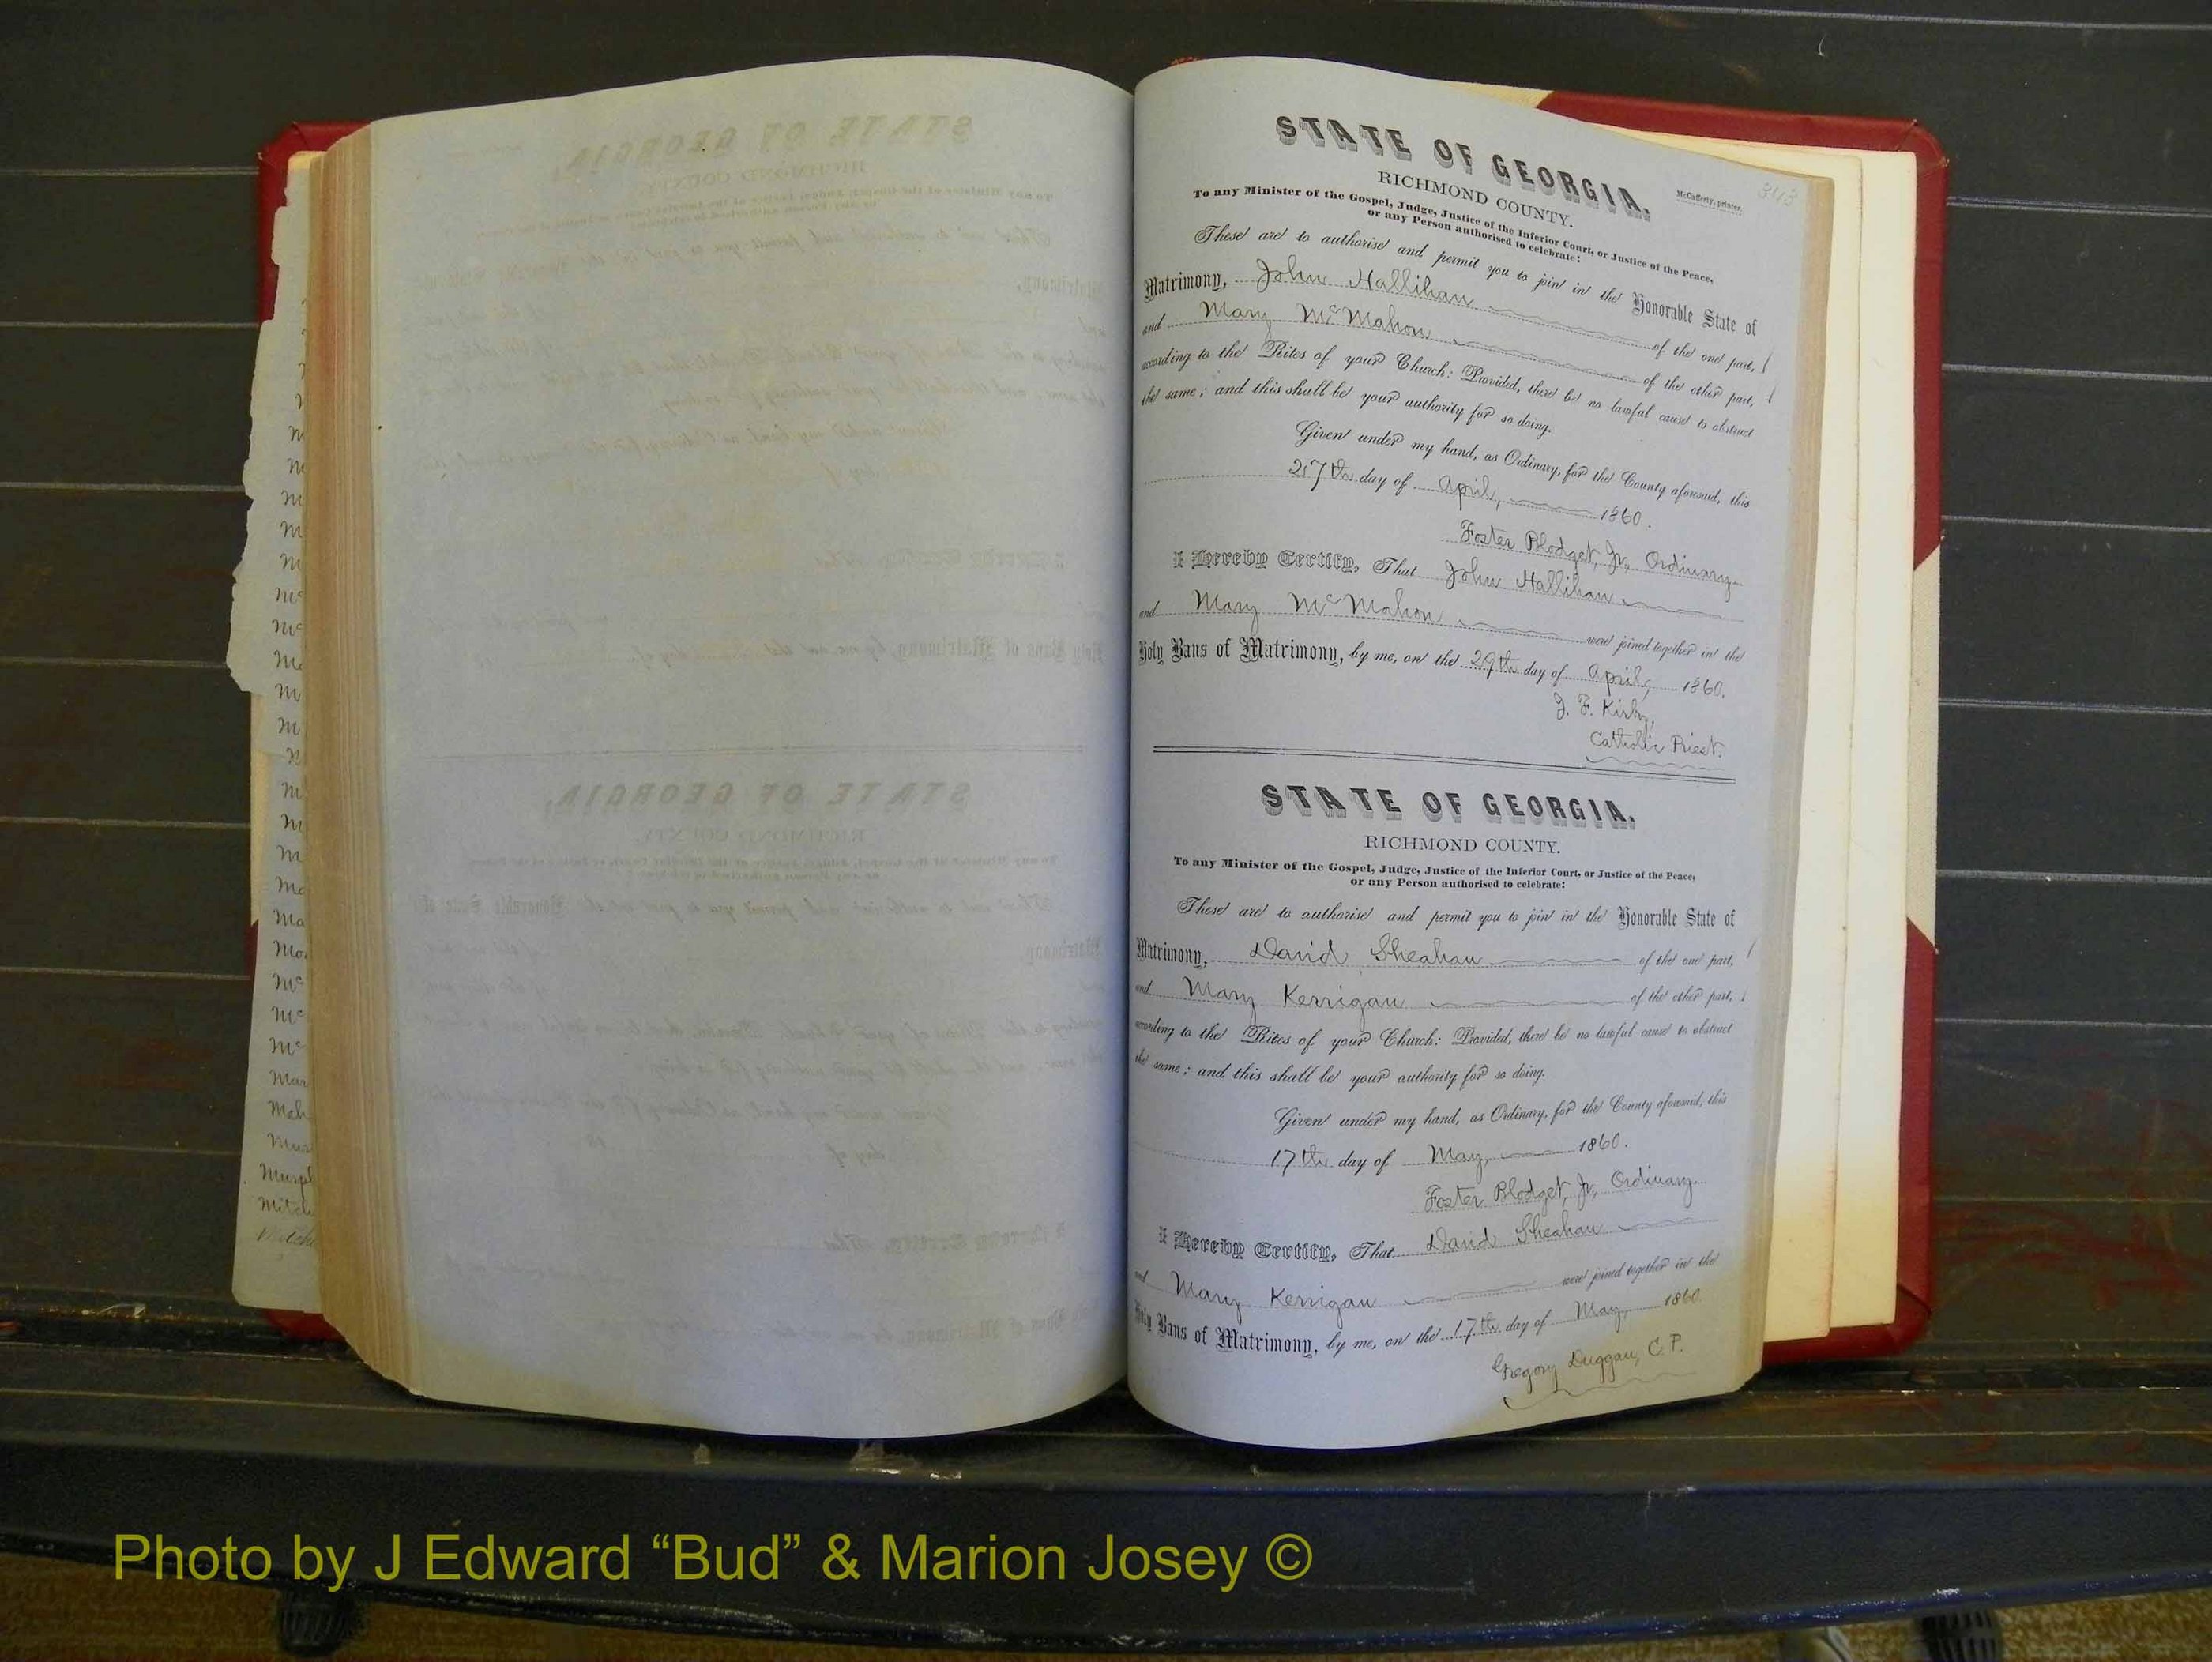 STATE OF GEORGIA.
McCafferty, printer.
RICHMOND COUNTY.
To any Minister of the Gospel, Judge, Justice of the Inferior Court, or Justice of the Peace,
or any Person authorised to celebrate:
These are to authorise and permit you to join in the Honorable State of
Matrimony, John Hallihan of the one part,
and Mary McMahon of the other part,
according to the Rites of your Church: Provided, there be no lawful cause to obstruct
the same; and this shall be your authority for so doing.
Given under my hand, as Ordinary, for the County aforesaid, this
27th day of April, 1860.
Foster Blodget, Jr, Ordinary
I Hereby Certify, That John Hallihan
and Mary McMahon were joined together in the
Holy Bans of Matrimony, by me, on the 29th day of April, 1860.
J. F. Kirby,
Catholic Priest.
STATE OF GEORGIA.
RICHMOND COUNTY.
To any Minister of the Gospel, Judge, Justice of the Inferior Court, or Justice of the Peace,
or any Person authorised to celebrate:
These are to authorise and permit you to join in the Honorable State of
Matrimony, David Sheahan of the one part,
and Mary Kerrigan of the other part,
according to the Rites of your Church: Provided, there be no lawful cause to obstruct
the same; and this shall be your authority for so doing.
Given under my hand, as Ordinary, for the County aforesaid, this
17th day of May, 1860.
Foster Blodget, Jr, Ordinary
I Hereby Certify, That David Sheahan
and Mary Kerrigan were joined together in the
Holy Bans of Matrimony, by me, on the 17th day of May, 1860
Gregory Duggan, C. P.
Photo by J Edward “Bud” & Marion Josey ©